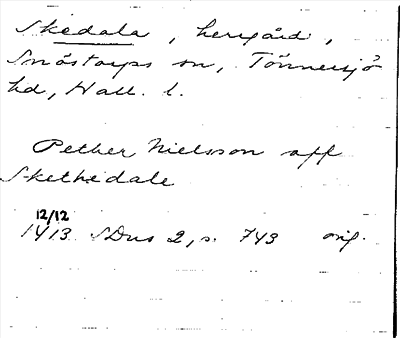 Skedala, herrgård,
Snöstorps sn, Tönnersjö
hd, Hall. l.
Pether Nielsson aff
Skethedale
12/12
1413 SDns 2, s. 743 orig.